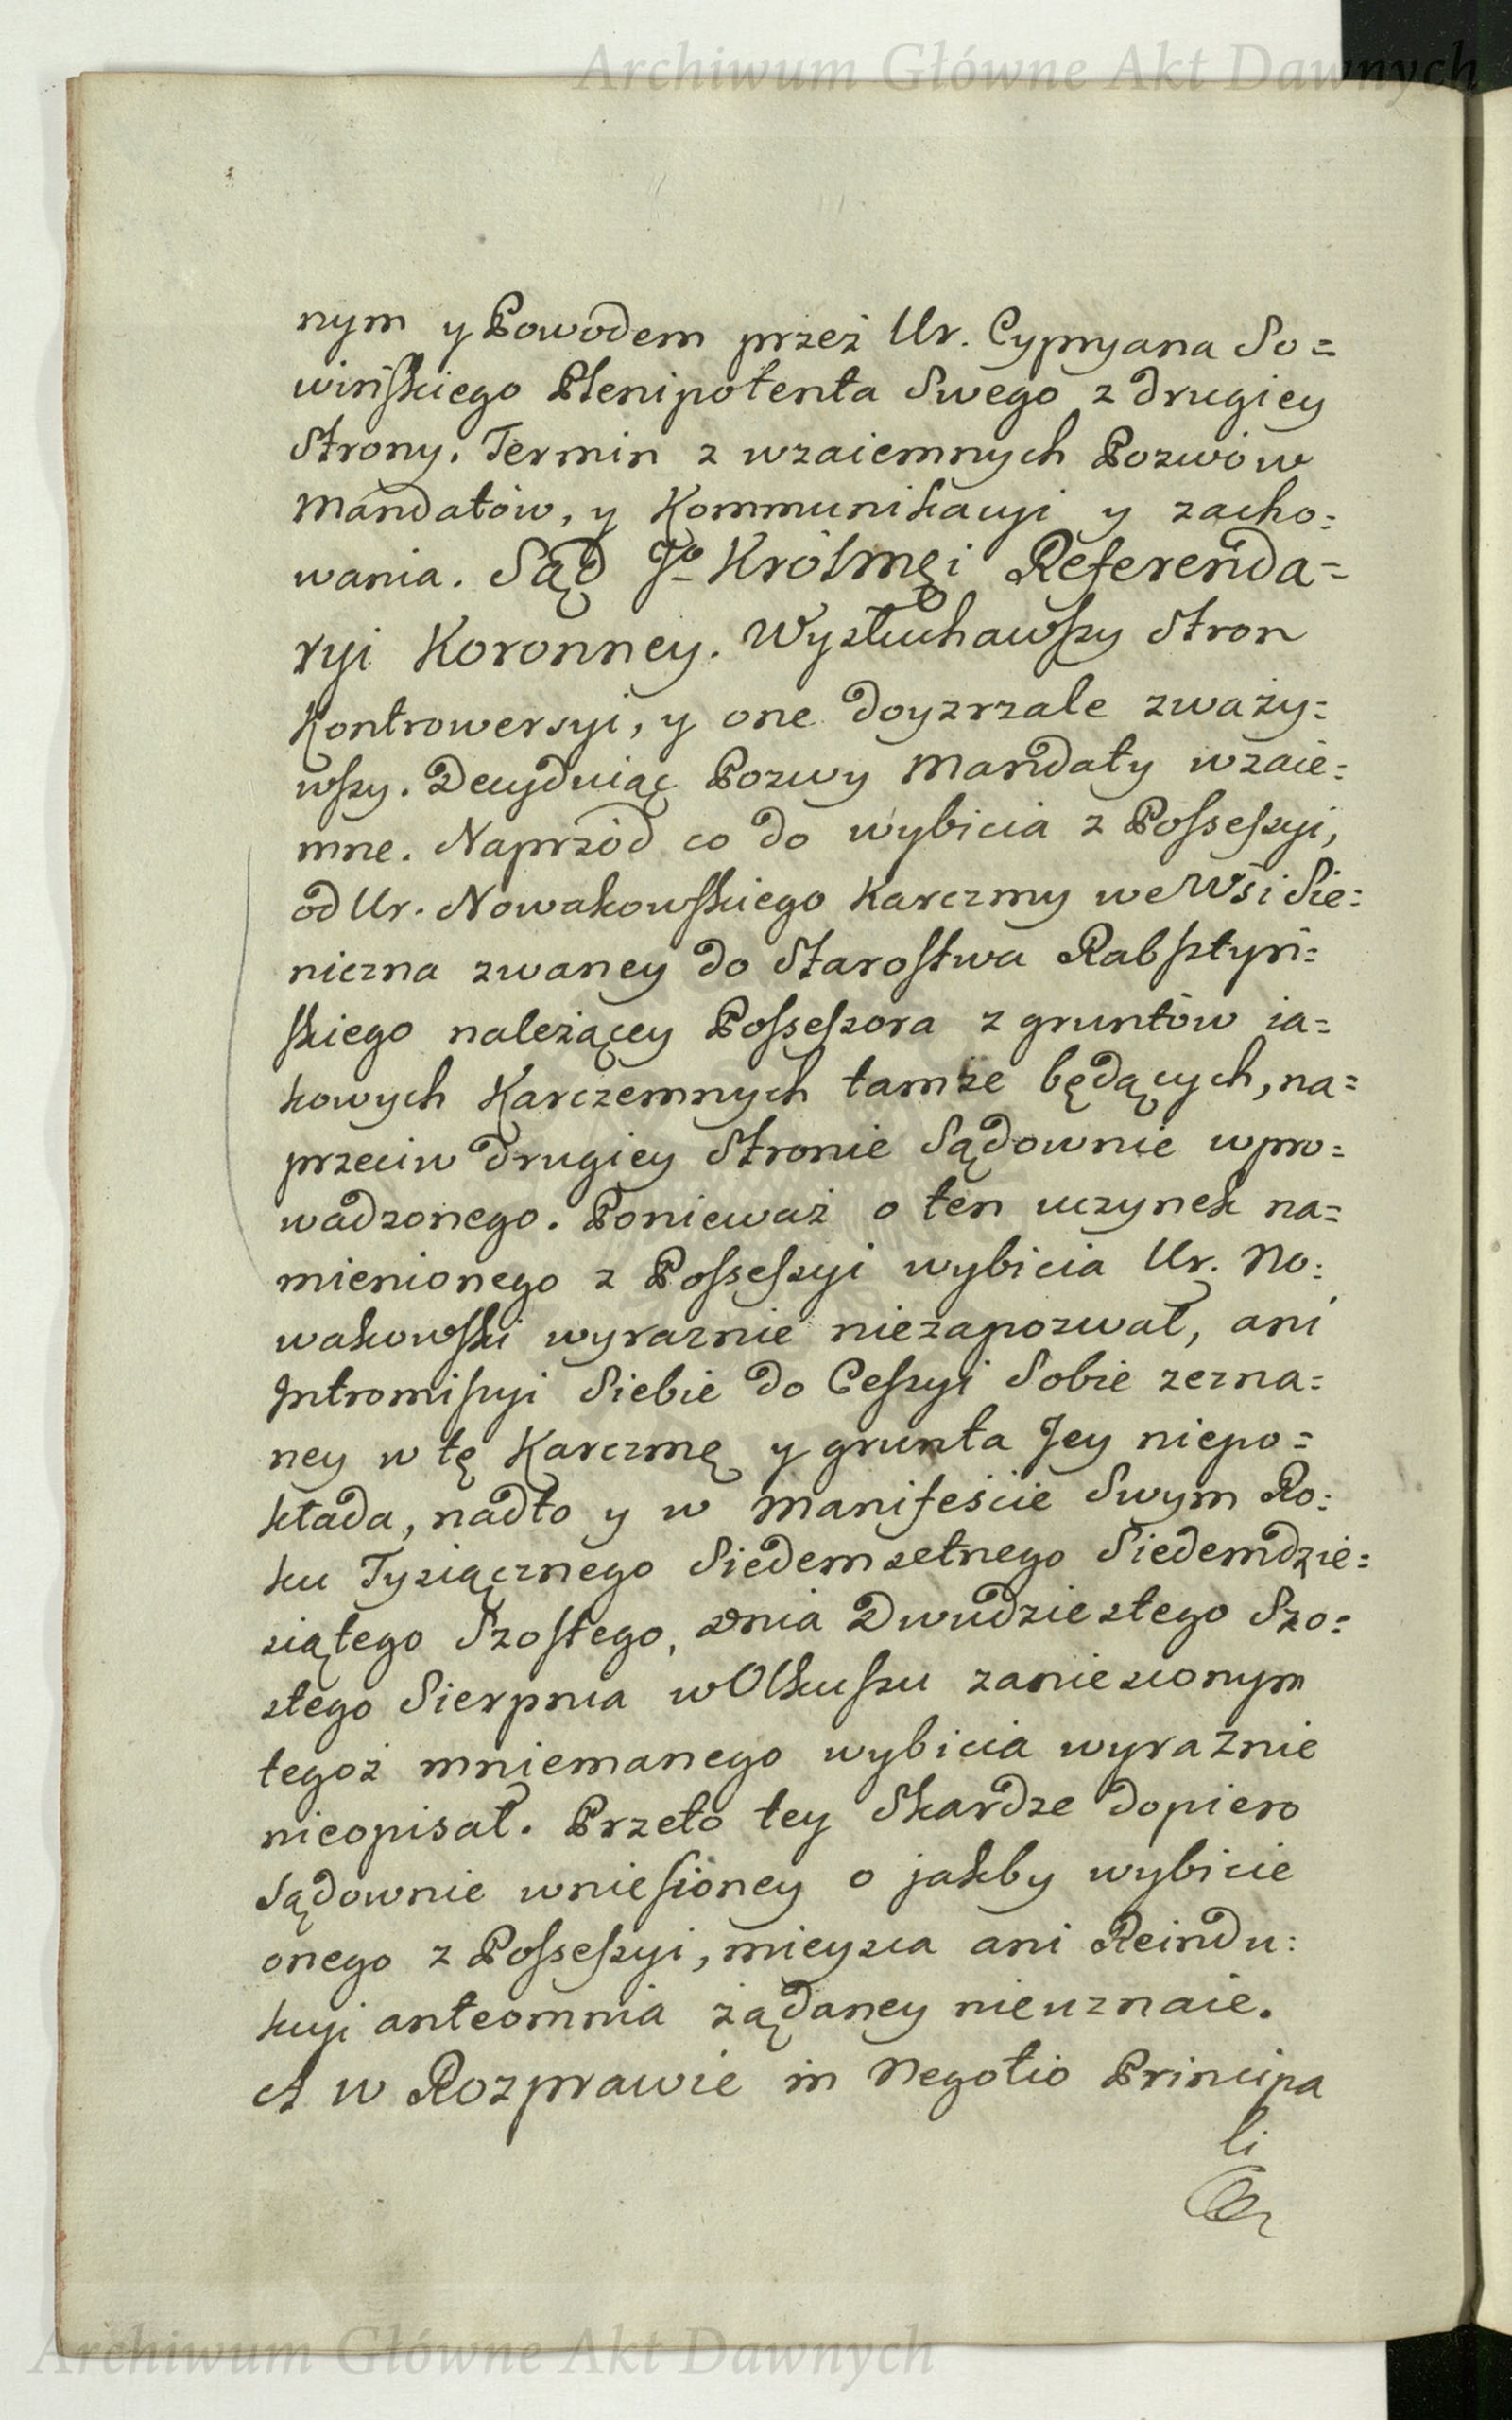 Archiwum Główne Akt Dawnych
nym y Powodem przez Ur. Cypryana So=
wińskiego Plenipotenta Swego z drugiey
Strony. Termin z wzaiemnych Pozwów
Mandatów, y Kommunikacyi y zacho=
wania. Sąd Jo Królmęi Referenda=
ryi Koronney. Wysłuchawszy Stron
Kontrowersyi, y one doyzrzale zważy=
wszy. Decyduiąc Pozwy Mandaty wzaie=
mne. Naprzód co do wybicia z Possessyi,
od Ur. Nowakowskiego Karczmy we Wsi Sie=
niczna zwaney do Starostwa Rabsztyń=
skiego należącey Possessora z gruntów ia=
kowych Karczemnych tamże będących, na=
przeciw drugiey Stronie Sądownie wpro=
wadzonego. Ponieważ o ten uczynek na=
mienionego z Possessyi wybicia Ur. No=
wakowski wyraznie niezapozwał, ani
Intromissyi Siebie do Cessyi Sobie zezna=
ney w tę Karczmę y grunta Jey niepo=
kłada, nadto y w Manifeście Swym Ro=
ku Tysiącznego Siedemsetnego Siedemdzie=
siątego Szostego, dnia Dwudziestego Szo=
stego Sierpnia w Olkuszu zaniesionym
tegoż mniemanego wybicia wyraźnie
nieopisał. Przeto tey Skardze dopiero
Sądownie wniesioney o jakby wybicie
onego z Possessyi, mieysca ani Reindu=
kcyi anteomnia żądaney nieuznaie.
A w Rozprawie in Negotio Principa
li
Archiwum Główne Akt Dawnych